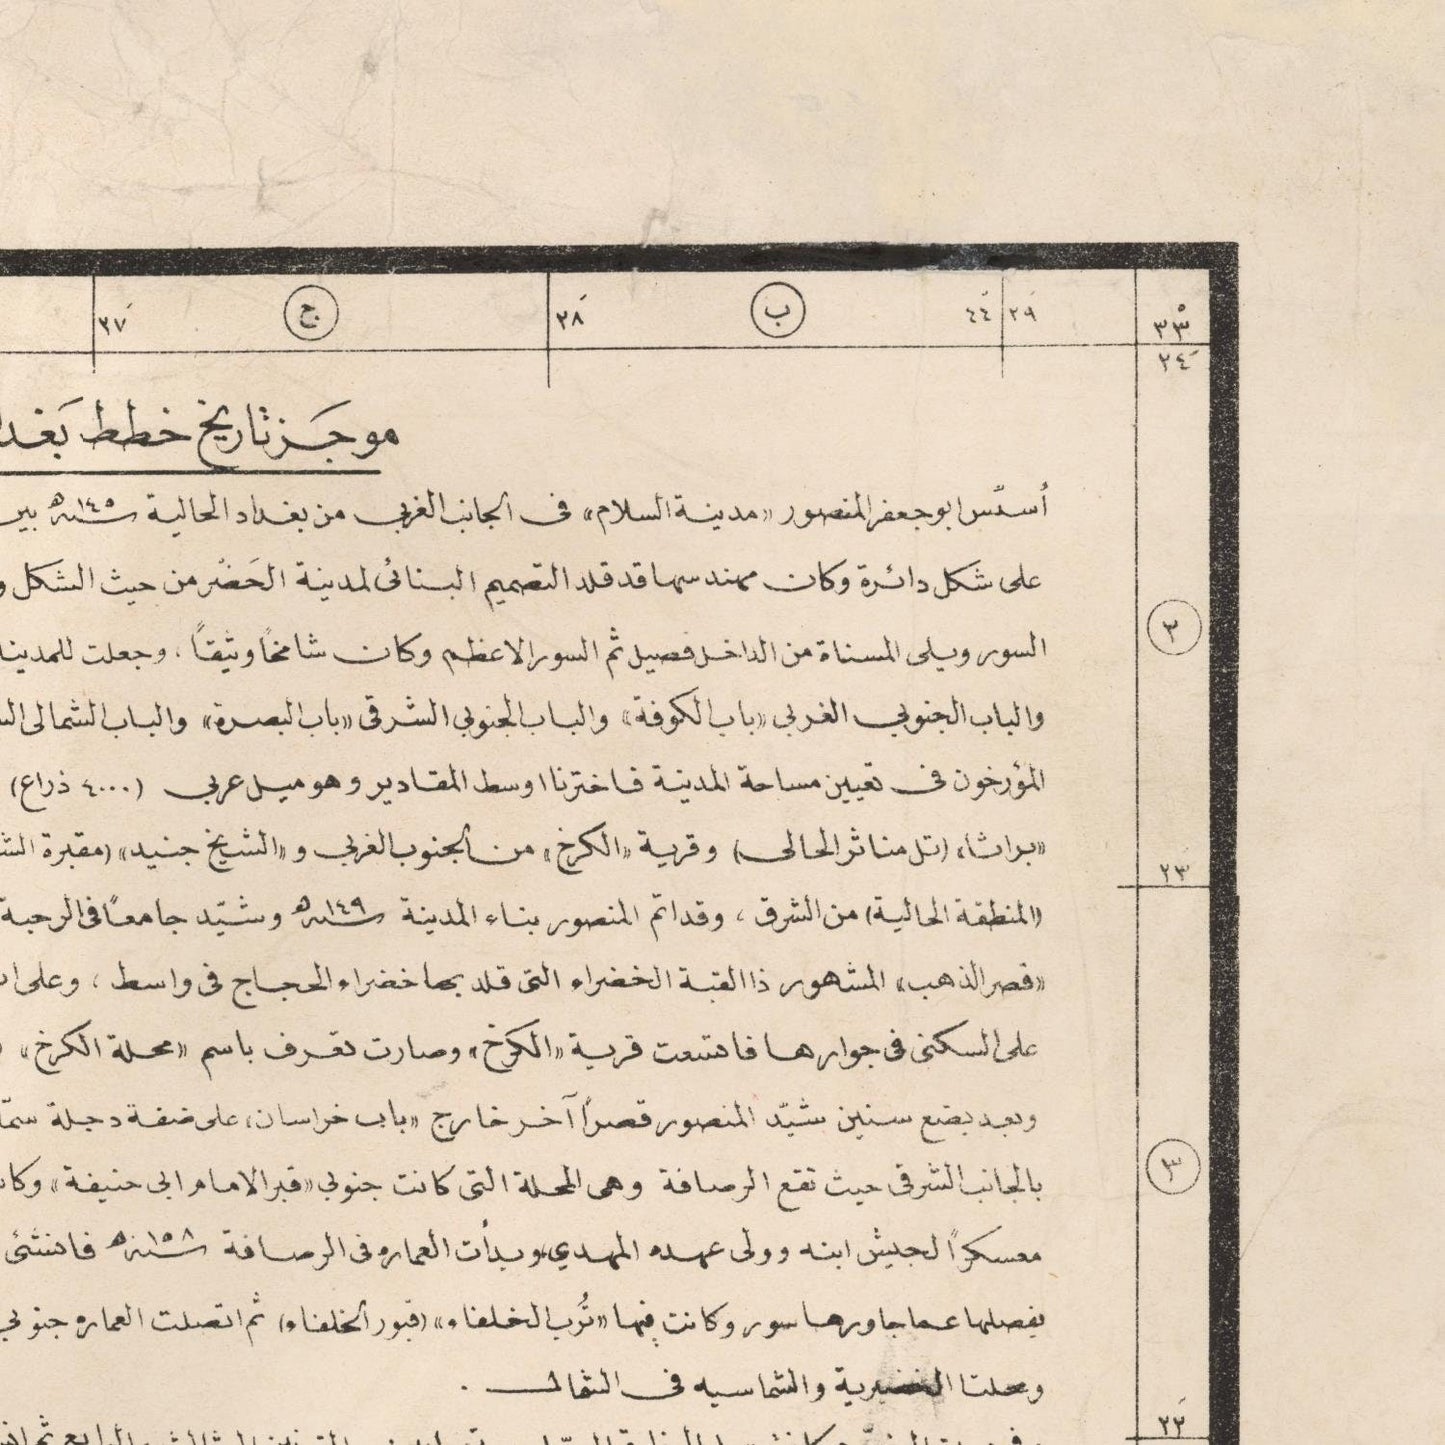 ٣٣° ٢٩ ٤٤ ب ٢٨ ج ٢٧
٢٤
موجز تاريخ خطط بغدا
أسّس ابو جعفر المنصور «مدينة السلام» فى الجانب الغربي من بغداد الحالية سنة ١٤٥ هـ بين
على شكل دائرة وكان مهندسها قد قلد التصميم البنائى لمدينة الحَضْر من حيث الشكل و
٢
السور ويلى المسناة من الداخل فصيل ثم السور الاعظم وكان شامخاً وثيقاً ، وجعلت للمدينة
والباب الجنوبي الغربي «باب الكوفة» والباب الجنوبي الشرقى «باب البصرة» والباب الشمالى
المؤرخون فى تعيين مساحة المدينة فاخترنا اوسط المقادير وهو ميل عربي (٤٠٠٠ ذراع)
«براثا» (تل مناثر الحالى) وقرية «الكرخ» من الجنوب الغربي و«الشيخ جنيد» (مقبرة
٢٣
(المنطقة الحالية) من الشرق ، وقد اتم المنصور بناء المدينة سنة ١٤٩ هـ وشيّد جامعاً فى الرحبة
«قصر الذهب» المشهور ذا القبة الخضراء التى قلد بها خضراء الحجاج فى واسط ، وعلى
على السكنى فى جوارها فاتسعت قرية «الكرخ» وصارت تعرف باسم «محلة الكرخ»
وبعد بضع سنين شيّد المنصور قصراً آخر خارج «باب خراسان» على ضفة دجلة
بالجانب الشرقى حيث تقع الرصافة وهى المحلة التى كانت جنوبي «قبر الامام ابى حنيفة»
٣
معسكراً لجيش ابنه وولى عهده المهدي وبدأت العماره فى الرصافة سنة ١٥٨ هـ فانشئ
يفصلها عما جاورها سور وكانت فيها «تُرب الخلفاء» (قبور الخلفاء) ثم اتصلت العماره جنوبي
ومحلتا الخضيرية والشماسيه فى الشمال .
٢٢